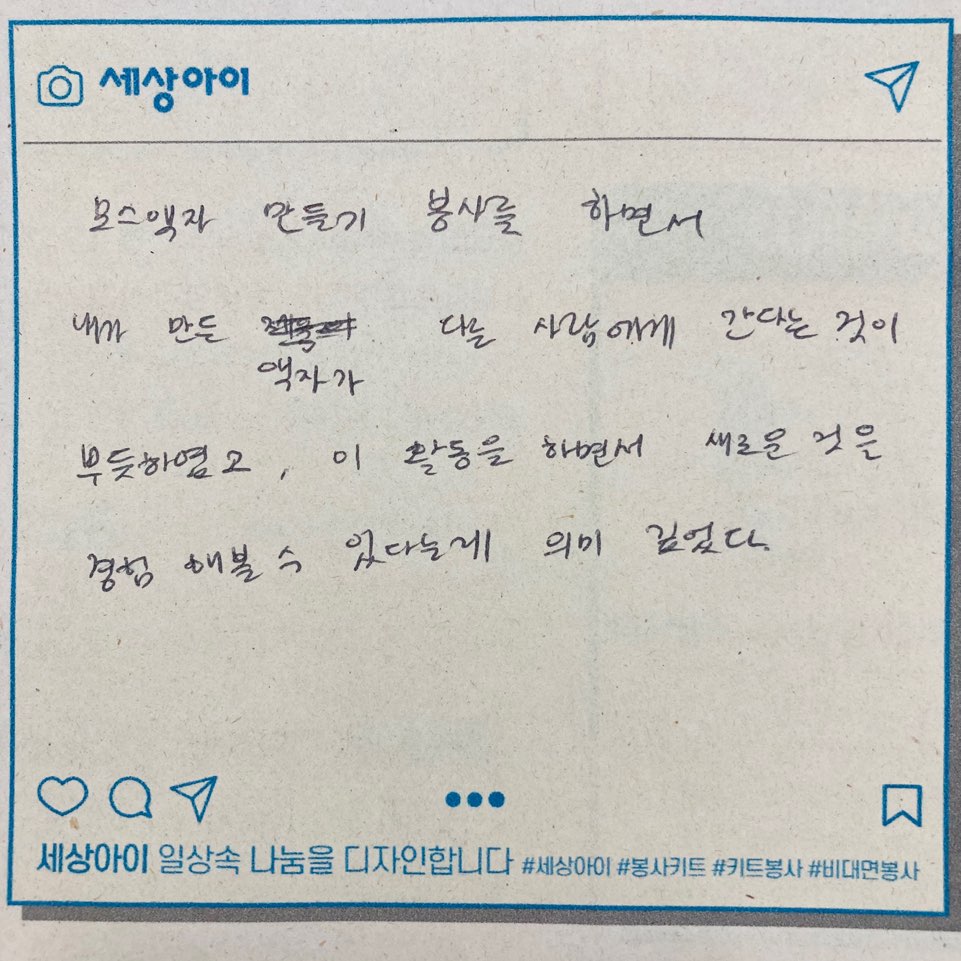 세상아이
모스액자 만들기 봉사를 하면서
내가 만든 다른 사람에게 간다는 것이
액자가
뿌듯하였고, 이 활동을 하면서 새로운 것을
경험 해볼 수 있다는게 의미 깊었다.
세상아이 일상속 나눔을 디자인합니다 #세상아이 #봉사키트 #키트봉사 #비대면봉사